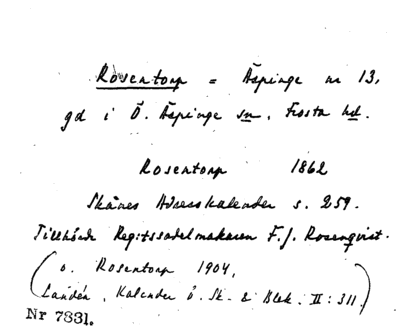 Rosentorp = Äspinge nr 13,
gd i Ö. Äspinge sn, Frosta hd.
Rosentorp 1862
Skånes Adresskalender s. 259.
Tillhörde Reg:tssadelmakaren F. J. Rosenqvist.
(o. Rosentorp 1904,
Landén, Kalender ö. Sk. & Blek. II: 311.)
Nr 7831.